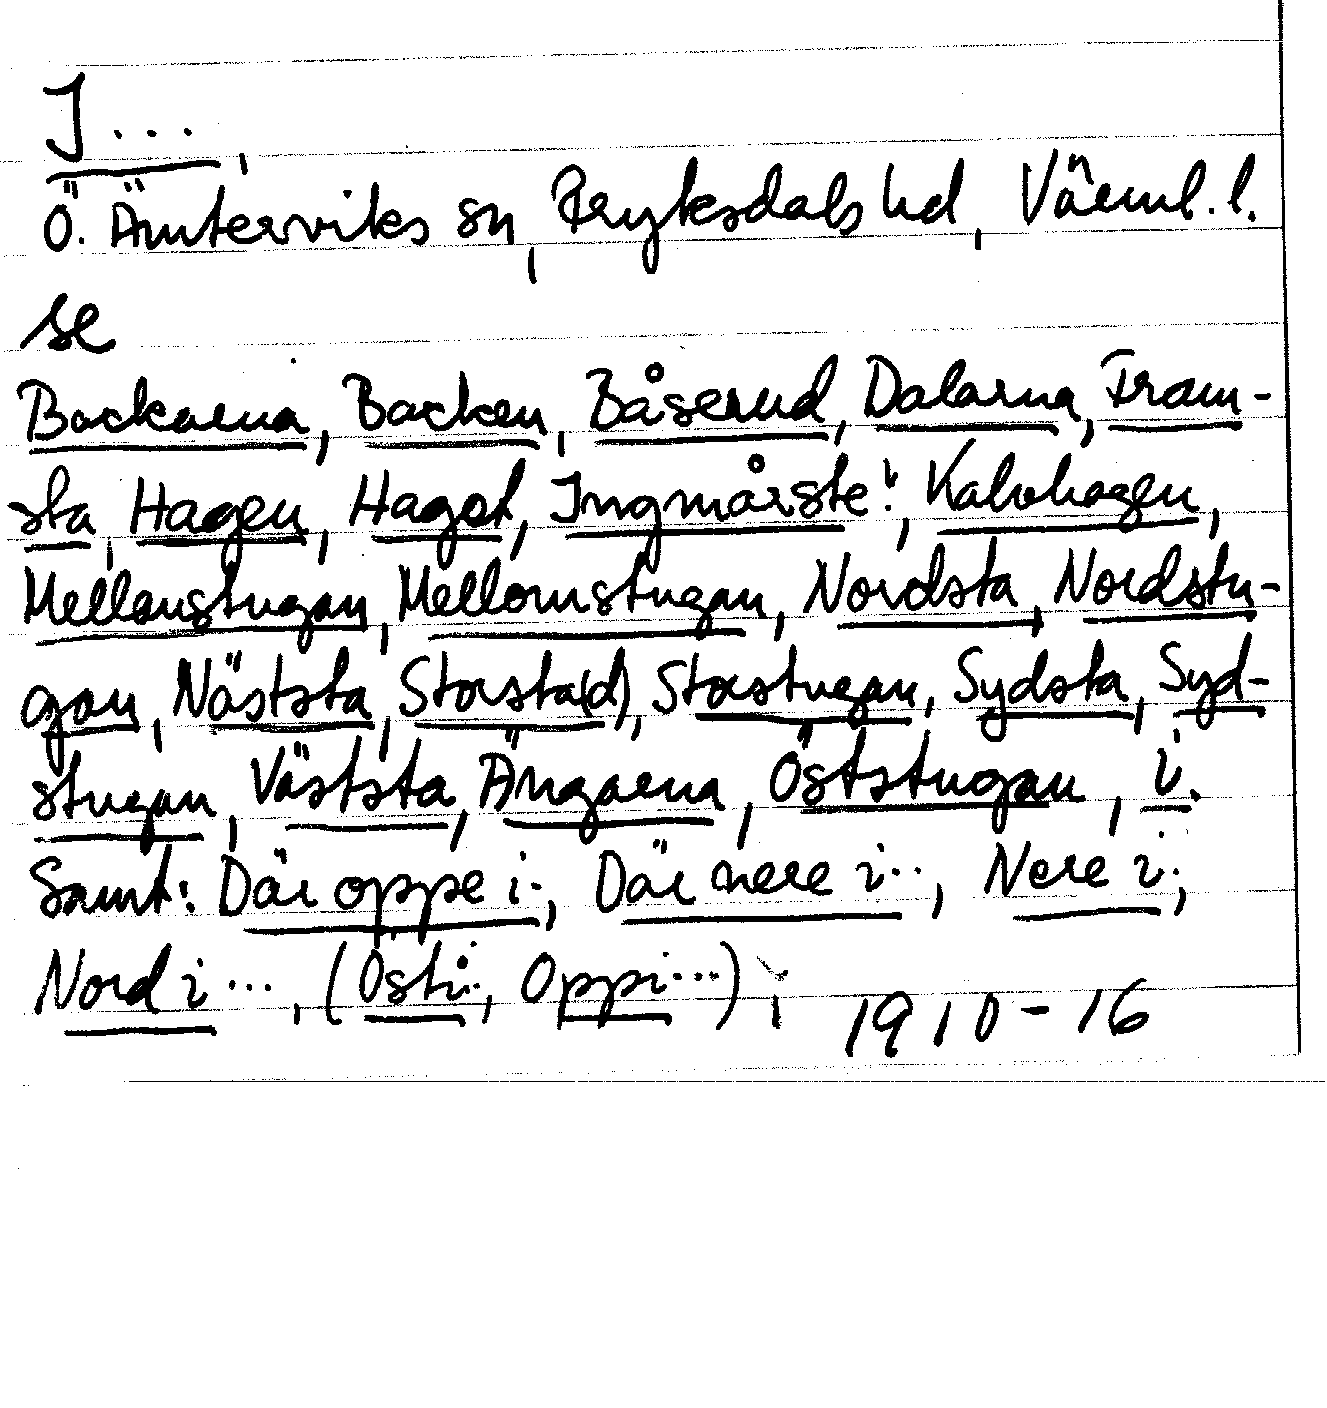 I ...,
Ö. Ämterviks sn, Fryksdals hd, Värml. l.
se
Backarna, Backen, Båserud, Dalarna, Fram-
sta, Hagen, Haget, Ingmårste!, Kalvhagen,
Mellanstugan, Mellomstugan, Nordsta, Nordstu-
gan, Näststa, Storsta(d), Storstugan, Sydsta, Syd-
stugan, Väststa, Ängarna, Öststugan, i.
Samt: Där oppe i.., Där nere i.., Nere i.,
Nord i ..., (Östi.., Oppi...),
1910-16